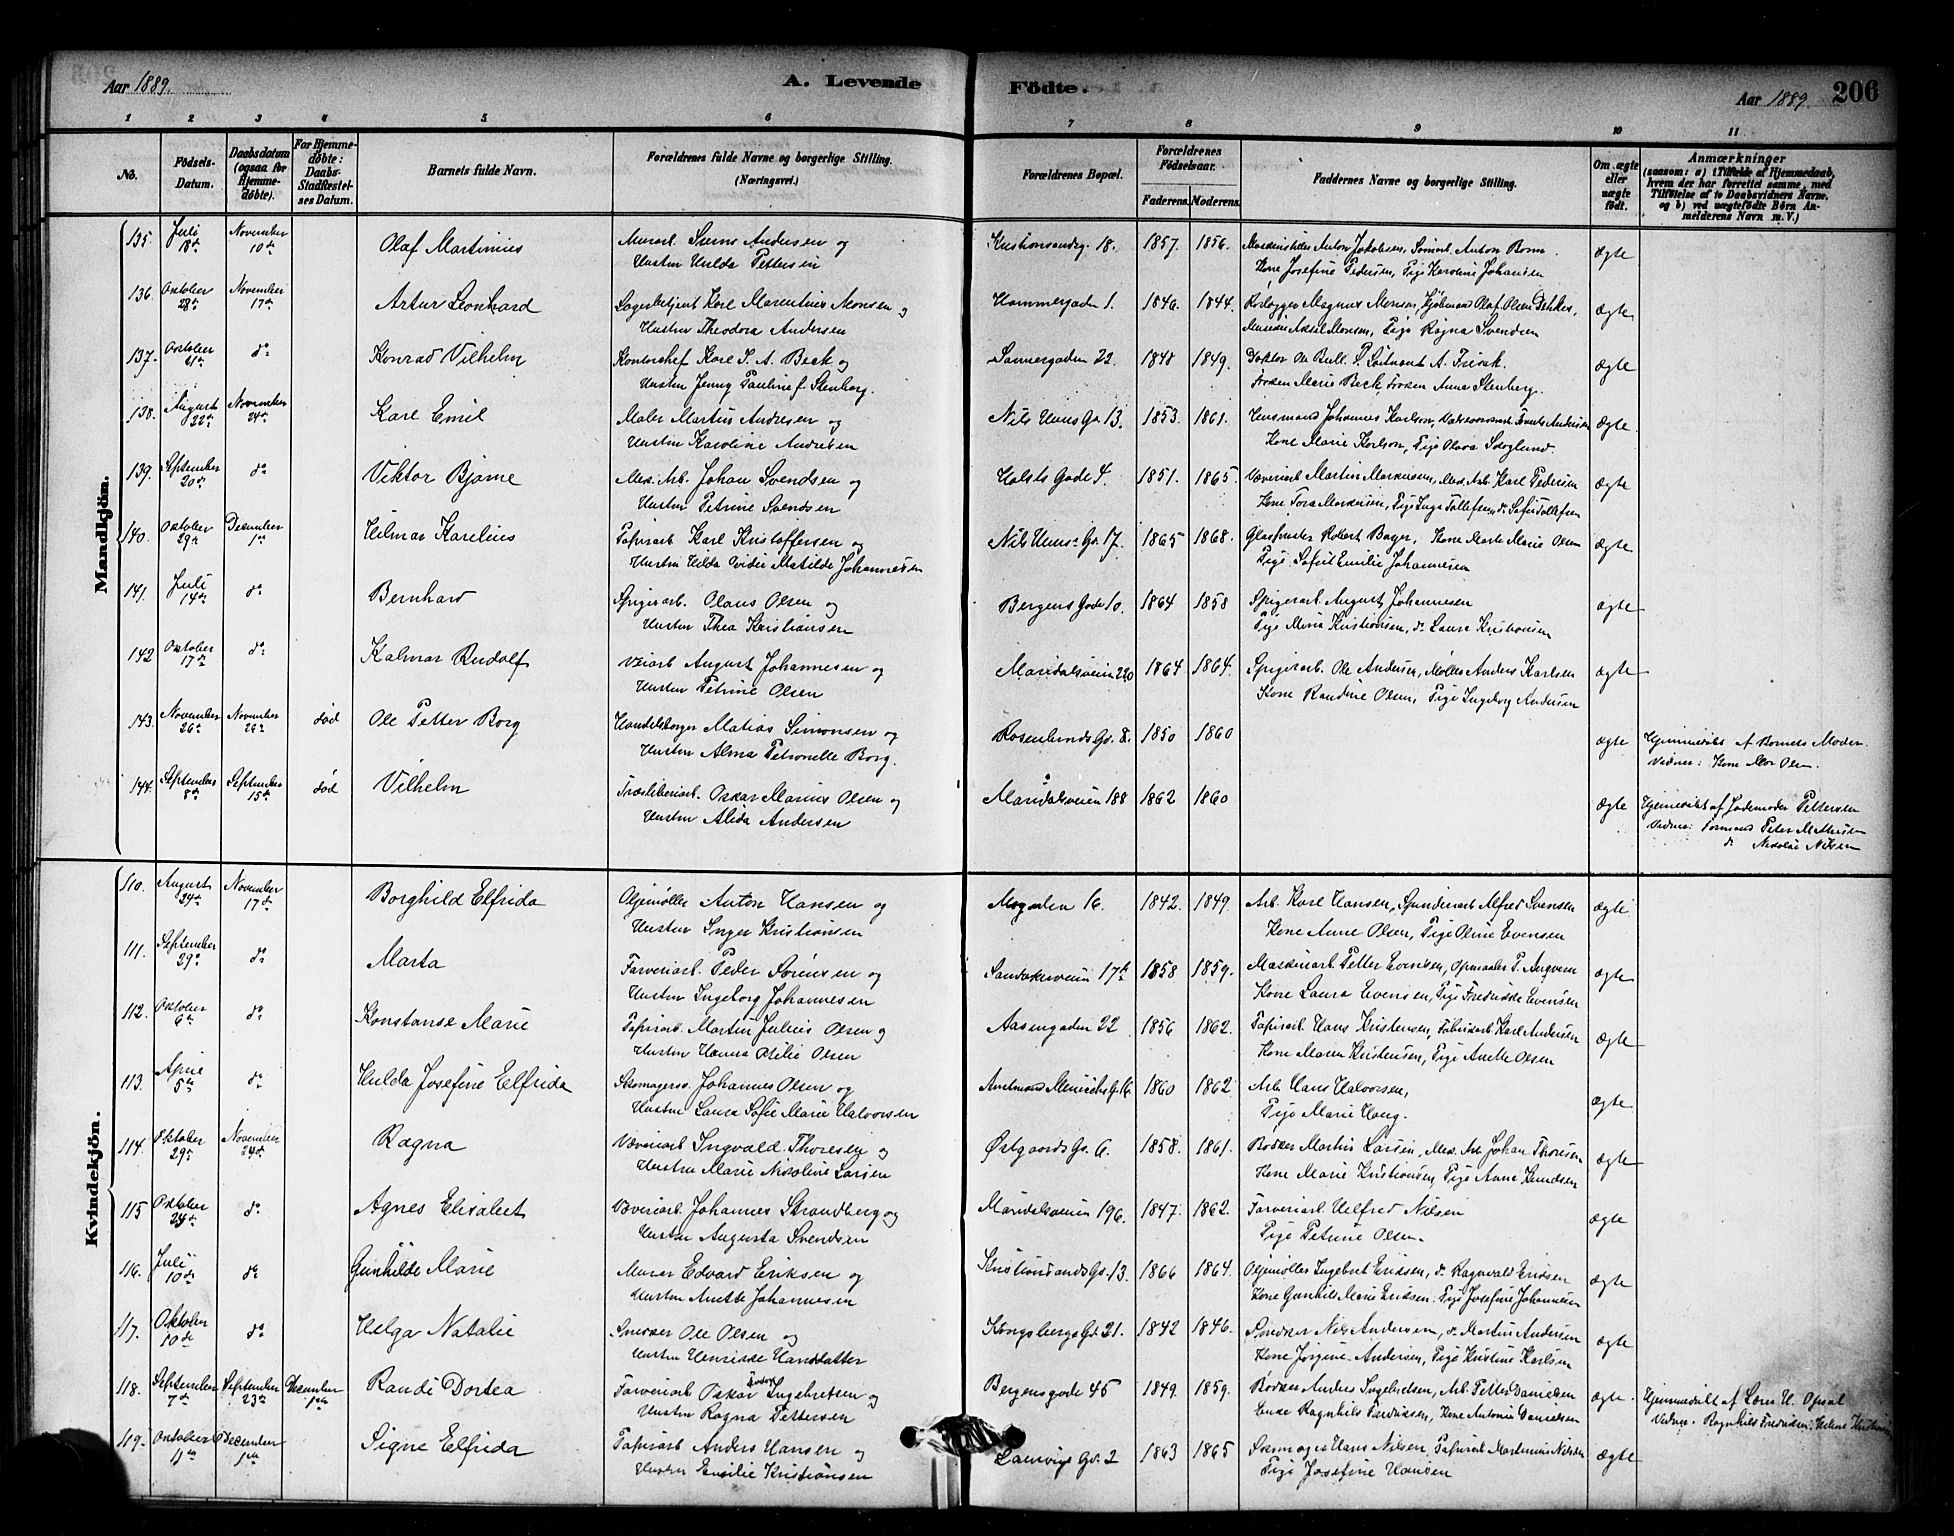 Aar 1889.
A. Levende
Födte.
Aar 1889.
206
1 2 3 4 5 6 7 8 9 10 11
No.
Födsels-Datum.
Daabsdatum (ogsaa for Hjemme-döbte).
For Hjemme-döbte: Daabs-Stadfæstel-ses Datum.
Barnets fulde Navn.
Forældrenes fulde Navne og borgerlige Stilling. (Næringsvei.)
Forældrenes Bopæl.
Forældrenes Födselsaar.
Faderens. Moderens.
Faddernes Navne og borgerlige Stilling.
Om ægte eller uægte födt.
Anmærkninger
(saasom: a) i Tilfælde af Hjemmedaab, hvem der har forrettet samme, med Tilföielse af to Daabsvidners Navne, og b) ved uægtefödte Börn An-melderens Navn m. V.)
Mandkjön.
135. Juli 18de November 10de Olaf Martinius Andersen og 18. 1857. 1856. Anton Jakobsen, Anton ægte
Hustru Hulda Pettersen Kone Josefine Pedersen, Pige Karoline Johansen
136. Oktober 28de November 17de Artur Leonhard Karl Marentius Monsen og Hammergaden 1. 1846. 1844. Magnus Monsen, Olaf Olsen ægte
Hustru Theodora Andersen Aksel Monsen, Pige Ragna Svendsen
137. Oktober do Konrad Vilhelm Kontorchef Karl S. A. Beck og Sannergaden 22. 1848 1849. Doktor Ole Bull, A. ægte
Hustru Jenny Pauline f. Stenberg. Frøken Marie Beck, Frøken Anna Stenberg.
138. August 22de November 24de Karl Emil Maler Martin Andresen og Nils Huus Gd. 13. 1853. 1861. Johannes Karlson, Andersen ægte
Hustru Karoline Andresen Kone Marie Karlson, Pige Olava
139. September 20de do Viktor Bjarne Mek. Arb. Johan Svendsen og Holsts Gade 4. 1851. 1865. Væveriarb Martin Markussen, Mek. Arb. Karl Pedersen ægte
Hustru Petrine Svendsen Kone Tora Markussen, Pige Inga Tollefsen, do Sofie Tollefsen
140. Oktober 29de December 1ste Hilmar Karelius Papirarb Karl Kristoffersen og Nils Huus Gd. 17. 1865 1868. Robert Kone Marie Olsen ægte
Hustru Hilda Matilde Johannesen Pige Sofie Emilie Johannesen
141. Juli 14de do Bernhard Spigerarb. Olaus Olsen og Bergens Gade 10. 1864 1858 Spigerarb. August Johannesen ægte
Hustru Thea Kristiansen Pige Maria Kristiansen, do Laura Kristiansen
142 Oktober 17de do Kalmar Rudolf Veiarb August Johannesen og Maridalsveien 220 1864 1864. Spigerarb. Ole Andersen, Møller Anders Karlsen ægte
Hustru Petrine Olsen Kone Randine Olsen, Pige Ingeborg Andersen
143. November 26de November død Ole Petter Borg Handelsborger Matias Simonsen og Rosenlunds Gd. 8. 1850 1860 ægte Hjemmedøbt af Barnets Moder.
Hustru Alma Petronelle Borg. Vidner: Kone Olsen
144. September 8de September 15de død Vilhelm Oskar Marius Olsen og Maridalsveien 188 1862 1860 ægte Hjemmedøbt af Jordemoder Pettersen
Hustru Alida Andersen Vidner: Formand Peter
do Nikolai Nilsen
Kvindekjön.
110. August 24de November 17de Borghild Elfrida Oljemøller Anton Hansen og 16. 1842. 1849. Arb. Karl Hansen, Alfred Svensen ægte
Hustru Inger Kristiansen Kone Anne Olsen, Pige Oline Evensen
111. September 29de do Marta Farveriarb. Peder Sørensen og Sandakerveien 17b 1858 1859. Maskinarb Petter Evensen, P. ægte
Hustru Ingeborg Johannesen Kone Laura Evensen, Pige Fredrikke Evensen
112. Oktober 6te do Konstanse Marie Papirarb. Martin Julius Olsen og Aasengaden 22 1856 1862. Papirarb Hans Kristensen, Fabrikarb Karl Andersen ægte
Hustru Hanna Otilie Olsen Kone Maren Kristensen, Pige Anette Olsen
113. April 5te do Hulda Josefine Elfrida Skomagersv. Johannes Olsen og 1860 1862 Arb. Hans Halvorsen, ægte
Hustru Laura Sofie Marie Halvorsen Pige Marie Haug.
114. Oktober 29de November 24de Ragna Væveriarb Ingvald Thoresen og Østgaards Gd. 6. 1858. 1861. Bødker Martin Larsen, Mek. Arb. Johan Thoresen ægte
Hustru Marie Nicoline Larsen Kone Marie Kristiansen, Pige Anne Knudsen
115 Oktober 24de do Agnes Elisabet Væveriarb Johannes Strandberg og Maridalsveien 196. 1847. 1862. Farveriarb Nilsen ægte
Hustru Augusta Svendsen Pige Petrine Olsen.
116. Juli 10de do Gunhilde Marie Murer Edvard Eriksen og Kristiansands Gd. 13. 1866 1864. Oljemøller Ingebret Eriksen, do Ragnvald Eriksen ægte
Hustru Anette Johannesen Kone Gunhild Marie Eriksen. Pige Josefine Johannesen
117. Oktober 10de do Helga Natalie Snedker Ole Olsen og Kongsbergs Gd. 21. 1842 1846. Snedker Nils Andersen, do Martin Andersen ægte
Hustru Henrikke Hansdatter Kone Jørgine Andersen, Pige Kristine Karlsen
118. September 7de September 23de December 1ste Randi Dortea Farveriarb Oskar Ingebretsen og Bergensgade 45 1849. 1859. Bødker Andres Ingebretsen, Arb. Petter Danielsen ægte. Hjemmedøbt af
Hustru Ragna Pettersen Enke Ragnhild Fredriksen, Kone Antonie Danielsen Vidner. Ragnhild Fredriksen, Helene
119. Oktober 11te December 1ste Signe Elfrida Papirarb Anders Hansen og Laurvigs Gd. 2 1863 1865 Skomager Hans Nilsen, Papirarb Martinius Nilsen ægte
Hustru Emilie Kristiansen Pige Josefine Hansen